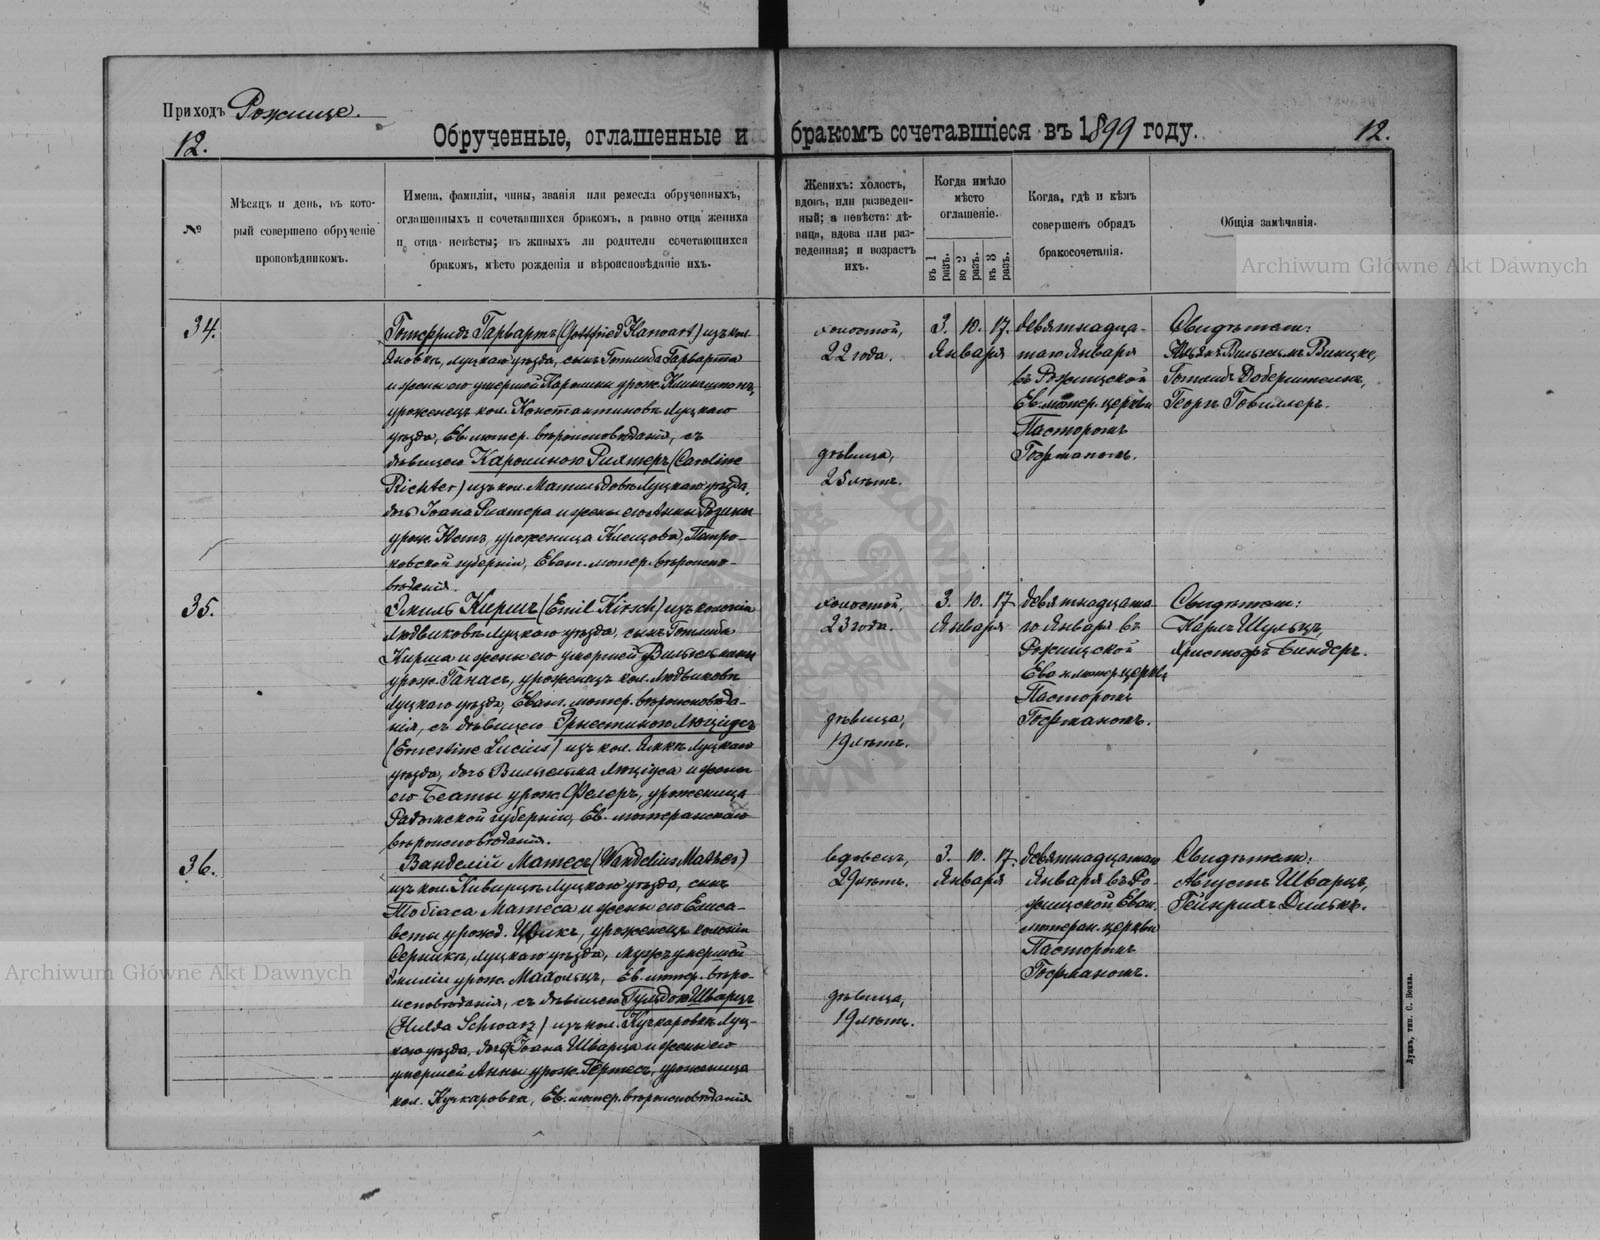 Приходъ Рожище.
12.
Обрученные, оглашенные и бракомъ сочетавшіеся въ 1899 году.
12.
№
Мѣсяцъ и день, въ кото-
рый совершено обрученіе
проповѣдникомъ.
Имена, фамиліи, чины, званія или ремесла обрученныхъ,
оглашенныхъ и сочетавшихся бракомъ, а равно отца жениха
и отца невѣсты; въ живыхъ ли родители сочетающихся
бракомъ, мѣсто рожденія и вѣроисповѣданіе ихъ.
Женихъ: холостъ,
вдовъ, или разведен-
ный; а невѣста: дѣ-
вица, вдова или раз-
веденная; и возрастъ
ихъ.
Когда имѣло
мѣсто
оглашеніе.
въ 1 разъ.
во 2 разъ.
въ 3 разъ.
Когда, гдѣ и кѣмъ
совершенъ обрядъ
бракосочетанія.
Общія замѣчанія.
Archiwum Główne Akt Dawnych
34.
Готфридъ Гарвартъ (Gottfried Harwart) изъ кол.
Яновки, луцкаго уѣзда, сынъ Готлиба Гарварта
и жены его умершей Каролины урож.
уроженецъ кол. Константиновки Луцкаго
уѣзда, Ев. лютер. вѣроисповѣданія, съ
дѣвицею Каролиною Рихтеръ (Caroline
Richter) изъ кол. Матильдовки Луцкаго уѣзда,
дочь Іоана Рихтера и жены его Анны Розины
урож. уроженица Петро-
ковской губерніи, Еван. лютер. вѣроиспо-
вѣданія.
холостой,
22 года.
дѣвица,
25 лѣтъ.
3. 10. 17.
Января
девятнадца-
таго Января
въ Рожищской
Ев. лютер. церкви
Пасторомъ
Гофманомъ.
Свидѣтели:
Вильгельмъ Виницке,
Готлибъ
Георгъ
35.
Эмиль Киршъ (Emil Kirsch) изъ колоніи
Людвиковки Луцкаго уѣзда, сынъ Готлиба
Кирша и жены его умершей Вильгельмины
урож. Ганасъ, уроженецъ кол. Людвиковки
Луцкаго уѣзда, Еван. лютер. вѣроисповѣда-
нія, съ дѣвицею Эрнестиною Люціусъ
(Ernestine Lucius) изъ кол. Луцкаго
уѣзда, дочь Вильгельма Люціуса и жены
его Беаты урож. Фелеръ, уроженица
Радомской губерніи, Ев. лютеранскаго
вѣроисповѣданія.
холостой,
23 года.
дѣвица,
19 лѣтъ.
3. 10. 17.
Января
девятнадцата-
го Января въ
Рожищской
Еван. лютер. церкви
Пасторомъ
Гофманомъ.
Свидѣтели:
Карлъ Шульцъ,
Христофъ Биндеръ.
36.
Ванделій Матесъ (Wandelius Mathes)
изъ кол. Киверцы Луцкаго уѣзда, сынъ
Тобіаса Матеса и жены его Елиса-
веты урожд. уроженецъ колоніи
Серники, Луцкаго уѣзда, мужъ умершей
Эмиліи урож. Ев. лютер. вѣро-
исповѣданія, съ дѣвицею Гульдою Шварцъ
(Hulda Schwarz) изъ кол. Кучкаровки Луц-
каго уѣзда, дочь Іоана Шварца и жены его
умершей Анны урож. Гертесъ, уроженица
кол. Кучкаровка, Ев. лютер. вѣроисповѣданія
вдовецъ,
29 лѣтъ.
дѣвица,
19 лѣтъ.
3. 10. 17.
Января
девятнадцатаго
Января въ Ро-
жищской Еван.
лютеран. церкви
Пасторомъ
Гофманомъ.
Свидѣтели:
Августъ Шварцъ,
Гейнрихъ Дилькъ.
Archiwum Główne Akt Dawnych
Луцкъ, тип. С. Бокка.